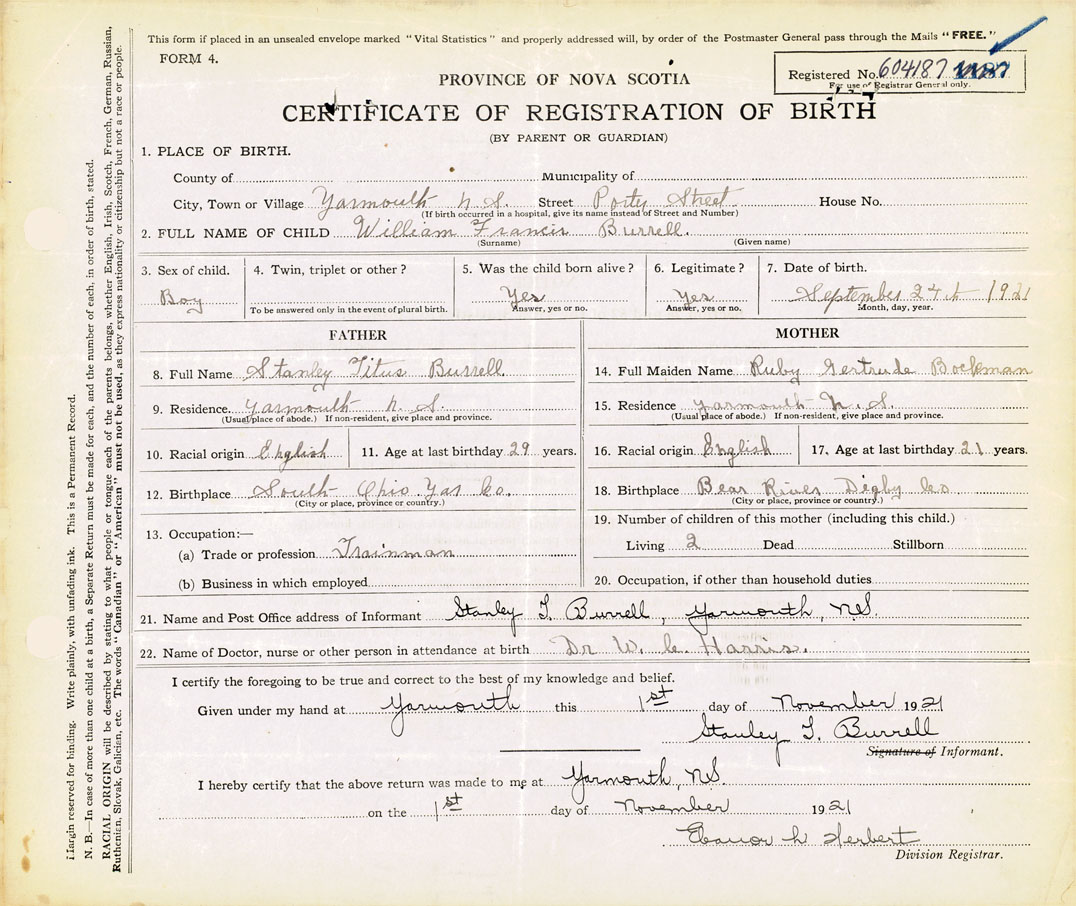 This form if placed in an unsealed envelope marked "Vital Statistics" and properly addressed will, by order of the Postmaster General pass through the Mails "FREE."
FORM 4.
Registered No. 604187
For use of Registrar General only.
PROVINCE OF NOVA SCOTIA
CERTIFICATE OF REGISTRATION OF BIRTH
(BY PARENT OR GUARDIAN)
1. PLACE OF BIRTH.
County of Municipality of
City, Town or Village Yarmouth N. S. Street Porty Street House No.
(If birth occurred in a hospital, give its name instead of Street and Number)
2. FULL NAME OF CHILD William Francis Burrell.
(Surname) (Given name)
3. Sex of child. 4. Twin, triplet or other? 5. Was the child born alive? 6. Legitimate? 7. Date of birth.
Boy Yes Yes September 24th 1921
To be answered only in the event of plural birth. Answer, yes or no. Answer, yes or no. Month, day, year.
FATHER
8. Full Name Stanley Titus Burrell.
9. Residence. Yarmouth N. S.
(Usual place of abode.) If non-resident, give place and province.
10. Racial origin English 11. Age at last birthday 29 years.
12. Birthplace South Ohio Yar Co.
(City or place, province or country.)
13. Occupation:—
(a) Trade or profession Trainman
(b) Business in which employed
MOTHER
14. Full Maiden Name Ruby Gertrude Bockman
15. Residence Yarmouth N. S.
(Usual place of abode.) If non-resident, give place and province.
16. Racial origin English 17. Age at last birthday 21 years.
18. Birthplace Bear River Digby Co
(City or place, province or country.)
19. Number of children of this mother (including this child.)
Living 2 Dead Stillborn
20. Occupation, if other than household duties
21. Name and Post Office address of Informant Stanley T. Burrell, Yarmouth, N.S.
22. Name of Doctor, nurse or other person in attendance at birth Dr W. C. Harris.
I certify the foregoing to be true and correct to the best of my knowledge and belief.
Given under my hand at Yarmouth this 1st day of November 1921
Stanley T. Burrell
Signature of Informant.
I hereby certify that the above return was made to me at Yarmouth, N.S.
on the 1st day of November 1921
Eleanor L. Herbert
Division Registrar.
Margin reserved for binding. Write plainly, with unfading ink. This is a Permanent Record.
N. B.—In case of more than one child at a birth, a Separate Return must be made for each, and the number of each, in order of birth, stated.
RACIAL ORIGIN will be described by stating to what people or tongue each of the parents belongs, whether English, Irish, Scotch, French, German, Russian,
Ruthenian, Slovak, Galician, etc. The words "Canadian" or "American" must not be used, as they express nationality or citizenship but not a race or people.